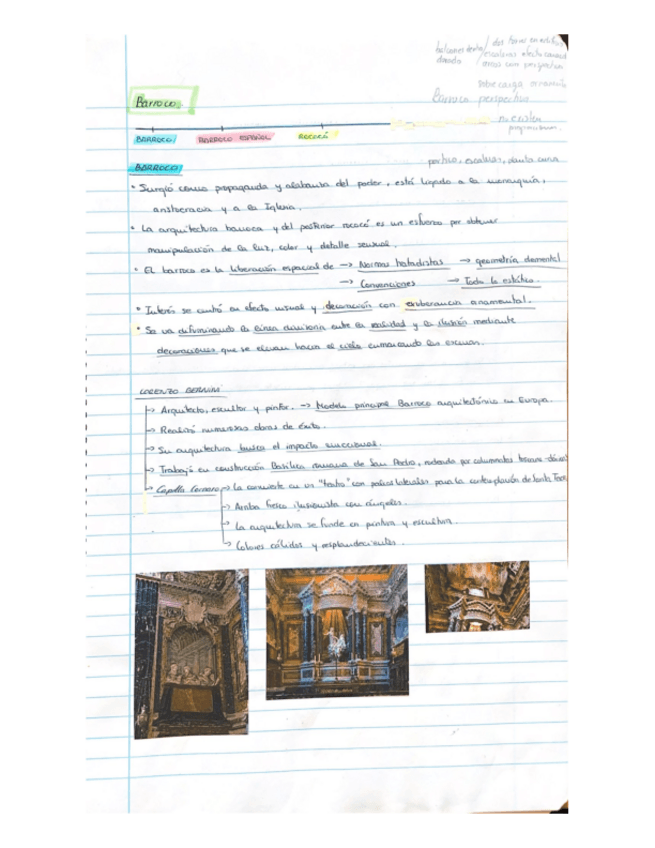 dos torres en edificio
balcones dentro / escaleras efecto
dorado / arcos con perspectiva
sobrecarga
Barroco perspectiva
Barroco.
no existen
BARROCO BARROCO ESPAÑOL ROCOCÓ
portico, escaleras, planta curva
BARROCO
• Surgió como propaganda y alabanza del poder, está ligado a la monarquía,
aristocracia y a la Iglesia.
• La arquitectura barroca y del posterior rococó es un esfuerzo por obtener
manipulación de la luz, color y detalle sensual.
• EL barroco es la liberación espacial de → Normas tratadistas → geometría elemental
→ Convenciones → Todo lo estático.
• Interés se centró en efecto visual y decoración con exuberancia ornamental.
• Se va difuminando la línea divisoria entre la realidad y la ilusión mediante
decoraciones que se elevan hacia el cielo enmarcando las escenas.
LORENZO BERNINI
→ Arquitecto, escultor y pintor. → Modelo principal Barroco arquitectónico en Europa.
→ Realizó numerosas obras de éxito.
→ Su arquitectura busca el impacto emocional.
→ Trabajó en construcción Basílica romana de San Pedro, rodeada por columnatas
→ Capilla Cornaro → La convierte en un "teatro" con palcos laterales para la contemplación de Santa Teresa
→ Arriba fresco ilusionista con ángeles.
→ La arquitectura se funde en pintura y escultura.
→ Colores cálidos y resplandecientes.